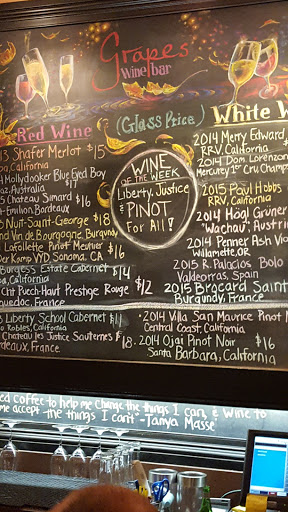 Grapes
Wine bar
Red Wine
(Glass Price)
White W
Shafer Merlot $15
California
Mollydooker Blue Eyed Boy
Australia $17
Chateau Simard $16
Emilion, Bordeaux
Nuit-Saint-George $18
Vin de Bourgogne, Burgundy
Lafollette Pinot Meunier
Der Kamp VYD, Sonoma, CA $16
Burgess Estate Cabernet
California $14
Puech-Haut Prestige Rouge
France $12
Liberty School Cabernet $11
Robles, California
Chateau les Justice Sauternes $18
France
WINE
OF THE WEEK
Liberty, Justice
& PINOT
For All!
2014 Merry Edward
RRV, California
2014 Dom. Lorenzon
Mercurey 1st Cru Champ
2015 Paul Hobbs
RRV, California
2014 Högl Grüner
"Wachau", Austria
2014 Penner Ash Vio
Willamette, OR
2015 R. Palacios Bolo
Valdeorras, Spain
2015 Brocard Saint
Burgundy, France
2014 Villa San Maurice Pinot N
Central Coast, California
2014 Ojai Pinot Noir $16
Santa Barbara, California
coffee to help me Change the things I can, & Wine to
me accept the things I can't -Tanya Masse